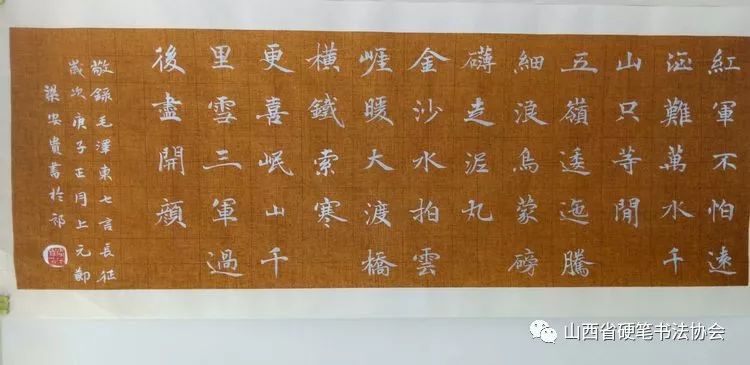 紅軍不怕遠
征難萬水千
山只等閒
五嶺逶迤騰
細浪烏蒙磅
礴走泥丸
金沙水拍雲
崕暖大渡橋
橫鐵索寒
更喜岷山千
里雪三軍過
後盡開顏
敬錄毛澤東七言長征
歲次庚子正月上元節
梁安貴書於祁
山西省硬笔书法协会